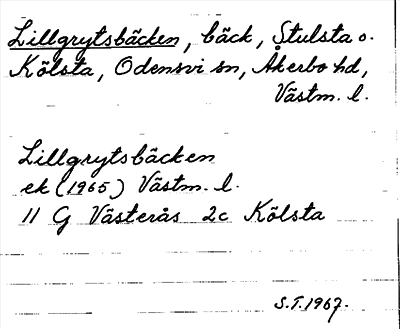 Lillgrytsbäcken, bäck, Stulsta o.
Kölsta, Odensvi sn, Åkerbo hd,
Västm. l.
Lillgrytsbäcken
ek (1965) Västm. l.
11 G Västerås 2c Kölsta
S.T. 1967.